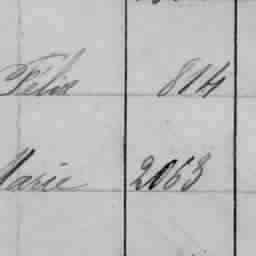 Félix 814
Marie 2063